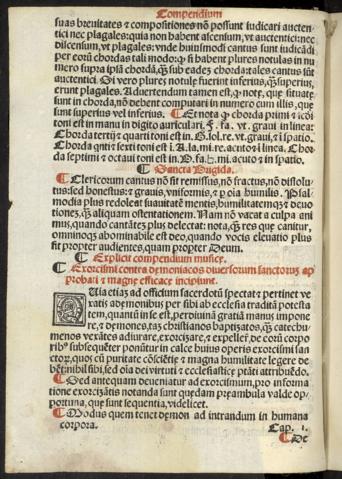 Compendium
suas breuitates & compositiones nõ possunt iudicari aucten-
tici nec plagales: quia non habent ascensum, vt auctentici: nec
discensum, vt plagales: vnde huiusmodi cantus sunt iudicãdi
per eorũ chordas tali modo: ꝙ si habent plures notulas in nu
mero supra ipsã chordã, q̃ sub eadẽ chorda: tales cantus sũt
auctentici. Si vero plures notulę fuerint inferius, q̃ superius,
erunt plagales. Aduertendum tamen est, ꝙ notę, que situatę
sunt in chorda, nõ debent computari in numero cum illis, que
sunt superius vel inferius. ¶ Et nota ꝙ chorda primi & scďi
toni est in manu in digito auriculari. F. fa. vt. graui in linea:
Chorda tertij & quarti toni est in. G. sol. re. vt. graui, & ĩ spatio.
Chorda qnti & sexti toni est ĩ. A. la. mi. re. acuto & ĩ linea. Chor
da septimi & octaui toni est in. B. fa. ♮. mi. acuto & in spatio.
¶ Sancta Brigida.
¶ Clericorum cantus nõ sit remissus, nõ fractus, nõ dissolu-
tus: sed honestus: & grauis, vniformis, & ꝑ oĩa humilis. Psal
modia plus redoleat suauitatẽ mentis, humilitatemqꝫ & deuo
tiones, q̃ aliquam ostentationem. Nam nõ vacat a culpa ani
mus, quando cantãtẽ plus delectat: nota, q̃ res quę canitur,
omninoqꝫ abominabile est deo, quando vocis eleuatio plus
fit propter audientes, quam propter Deum.
¶ Explicit compendium musicę.
¶ Exorcismi contra dęmoniacos diuersorum sanctoruꝫ ap
probati & magnę efficacę incipiunt.
QUia etiaꝫ ad officium sacerdotũ spectat & pertinet ve
xatis a dęmonibus per sibi ab ecclesia traditã potesta
tem, quantũ in se est, per diuinã gratiã manus impone
re, & dęmones, tã ꝫ christianos baptizatos, q̃ catechu-
menos vexãtes adiurare, exorcizare, & expellere, de eorũ corpo
ribꝰ subsequẽter ponũtur in calce huius operis exorcismi san
ctorꝫ, quos cũ puritate cõsciẽtię & magna humilitate legere de
bẽt: nihil sibi, sed oĩa dei virtuti & ecclesiasticę ptãti attribuẽdo.
¶ Sed antequam deueniatur ad exorcismum, pro informa
tione exorcizãtis notanda sunt quedam pręambula valde op-
portuna, que sunt sequentia, videlicet.
¶ Modus quem tenet dęmon ad intrandum in humana
corpora. Cap. 1.
¶ De